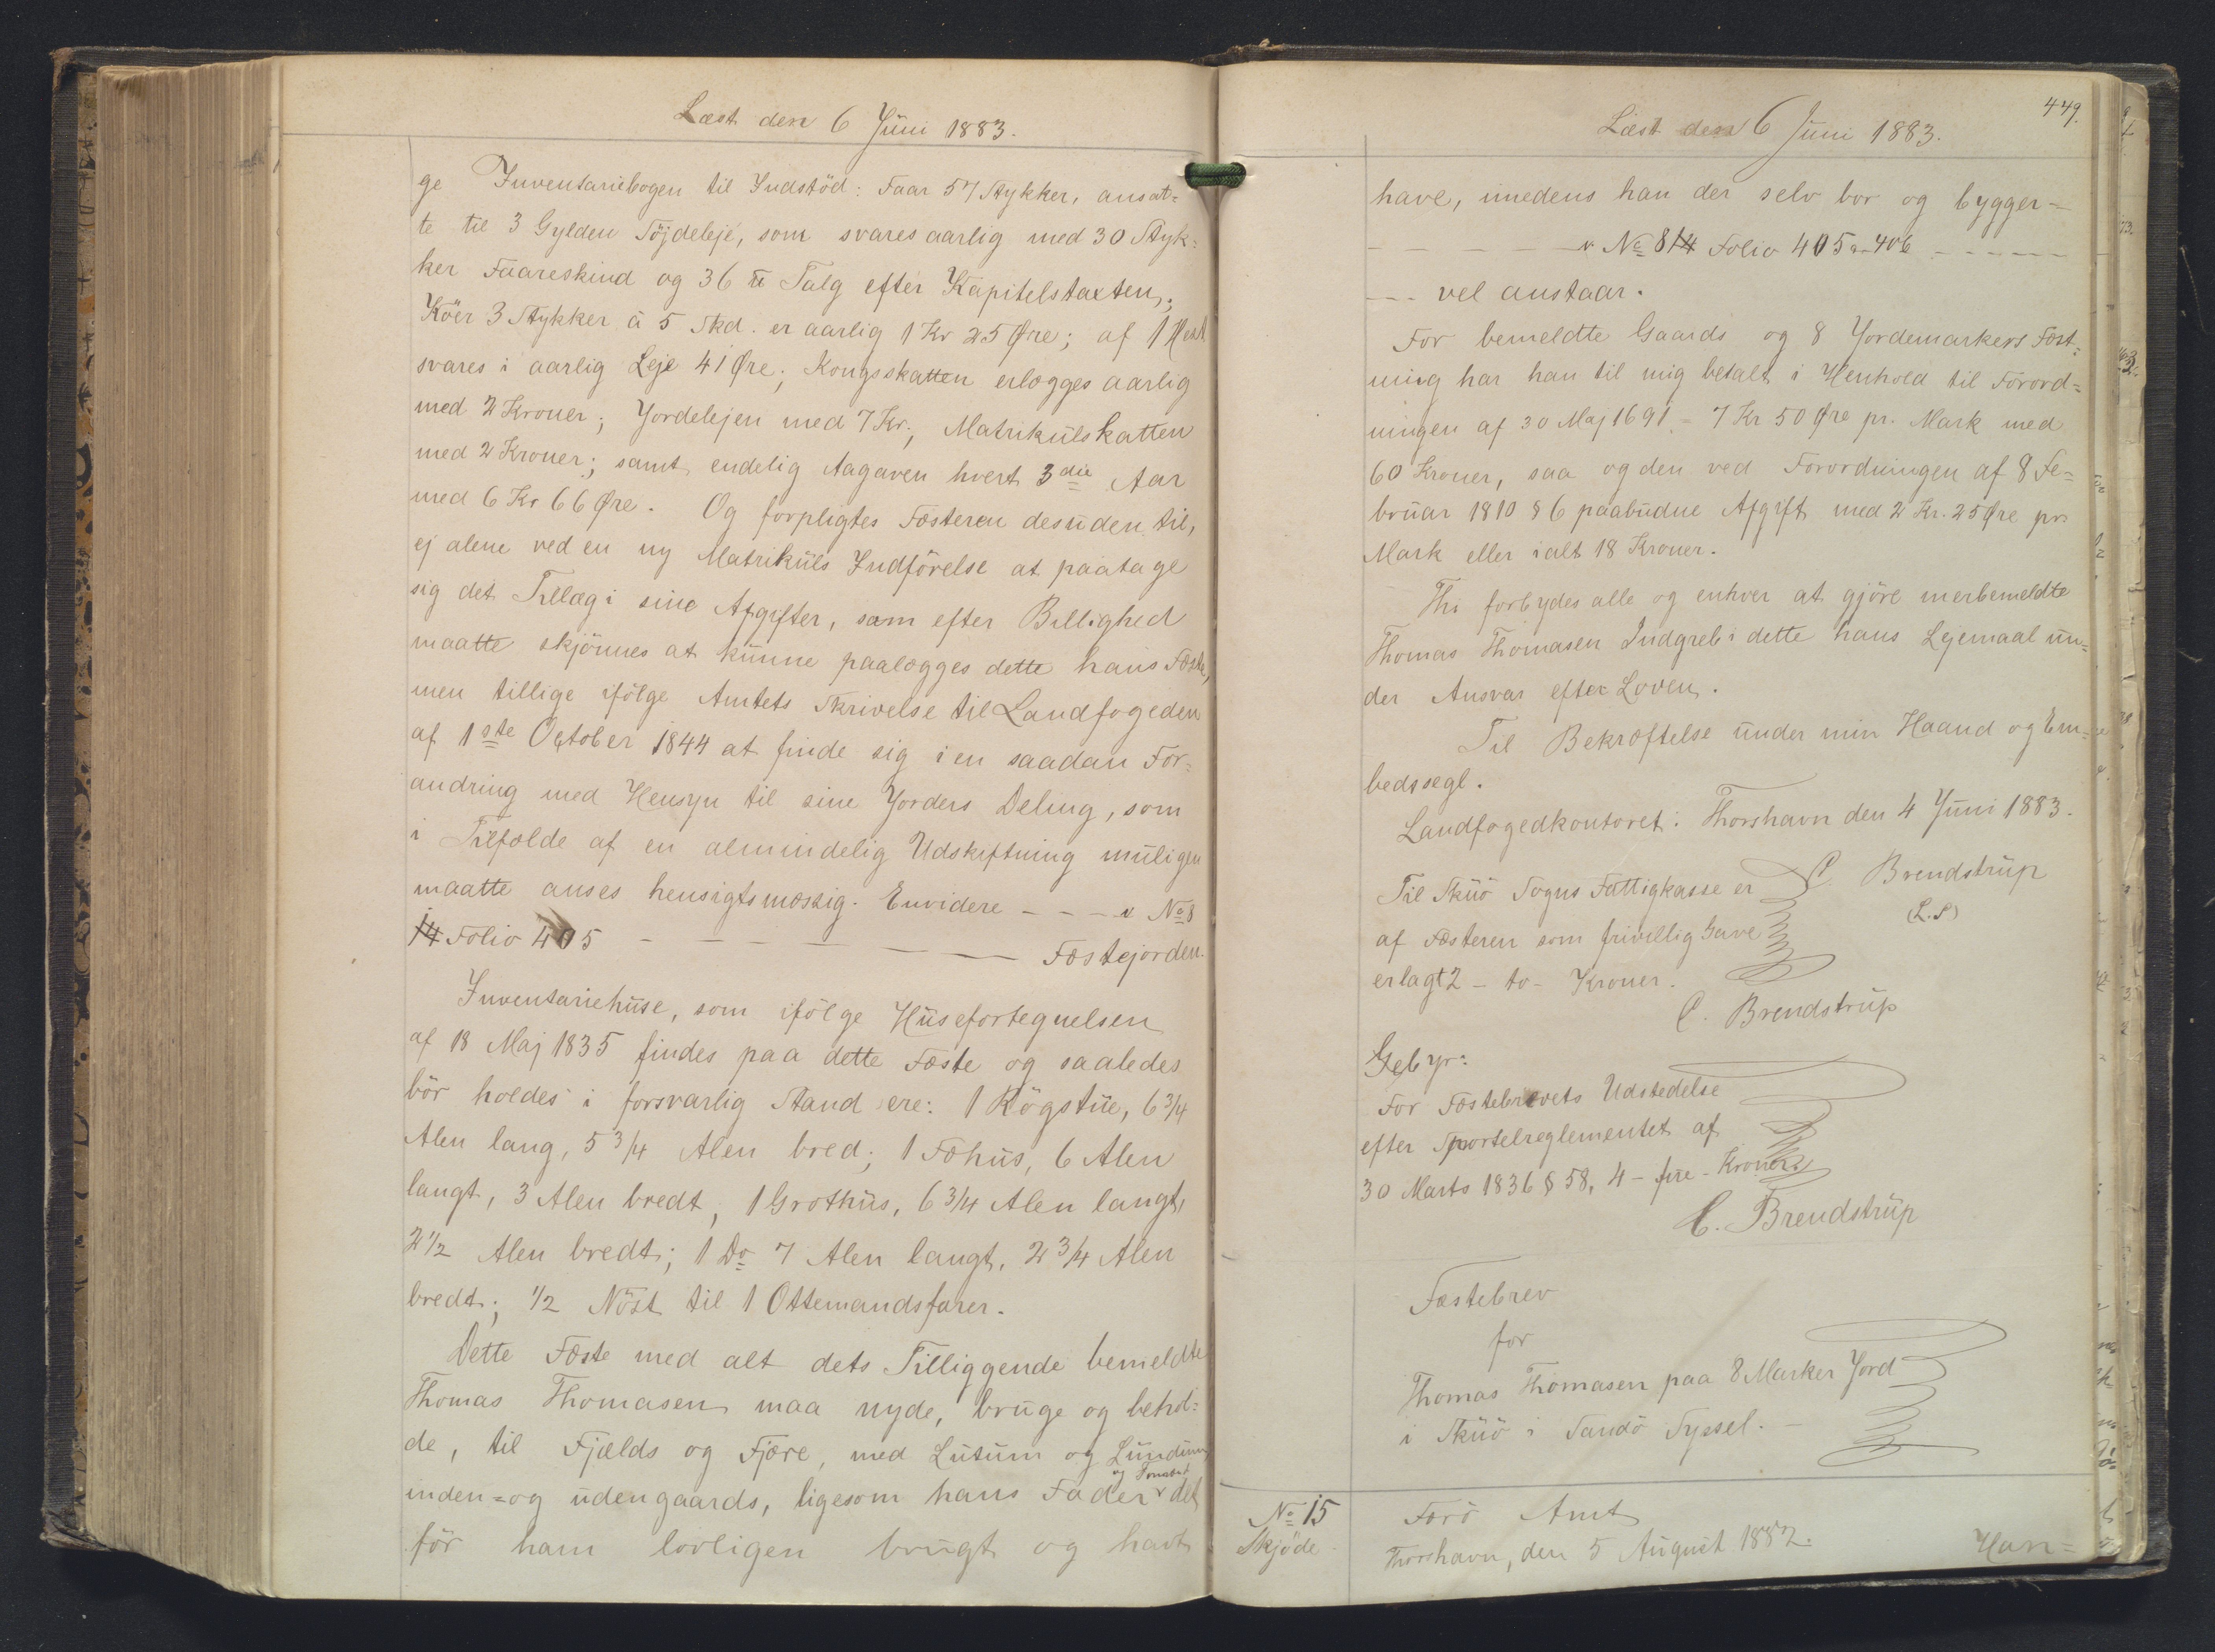 Læst den 6 Juni 1883.
ge Inventariebogen til Indstöd: Faar 57 Stykker, ansat-
te til 3 Gylden Töjdeleje, som svares aarlig med 30 Styk-
ker Faareskind og 36 ℔ Talg efter Kapitelstaxten;
Köer 3 Stykker à 5 Skd. er aarlig 1 Kr 25 Øre; af 1 Hest
svares i aarlig Leje 41 Øre; Kongsskatten erlægges aarlig
med 2 Kroner; Jordelejen med 7 Kr.; Matrikülskatten
med 2 Kroner; samt endelig Aagaven hvert 3die Aar
med 6 Kr 66 Øre. Og forpligtes Fæsteren desuden til,
ej alene ved en ny Matriküls Indförelse at paatage
sig det Tillæg i sine Afgifter, som efter Billighed
maatte skjönnes at kunne paalægges dette hans Fæste,
men tillige ifölge Amtets Skrivelse til Landfogeden
af 1ste October 1844 at finde sig i en saadan For-
andring med Hensyn til sine Jorders Deling, som
i Tilfælde af en almindelig Udskiftning muligen
maatte anses hensigtsmæssig. Envidere - - - v No 8
14 Folio 405 - - - - - Fæstejorden.
Inventariehuse, som ifölge Husefortegnelsen
af 18 Maj 1835 findes paa dette Fæste og saaledes
bör holdes i forsvarlig Stand ere: 1 Rögstue, 6 3/4
Alen lang, 5 3/4 Alen bred; 1 Fæhus, 6 Alen
langt, 3 Alen bredt, 1 Grothus, 6 3/4 Alen langt,
2 1/2 Alen bredt; 1 Do 7 Alen langt, 2 3/4 Alen
bredt; 1/2 Nöst til 1 Ottemandsfarer.
Dette Fæste med alt dets Tilliggende bemeldte
Thomas Thomasen maa nyde, bruge og behol-
de, til Fjælds og Fjære, med Lutum og Lundum
inden- og udengaards, ligesom hans Fader v det
og Formænd
för ham lovligen brugt og havt
449.
Læst den 6 Juni 1883.
have, imedens han der selv bor og bygger -
- - - - - v No 8 14 Folio 405 a 406 - - - - -
- - - vel anstaar.
For bemeldte Gaards og 8 Jordemarkers Fæst-
ning har han til mig betalt i Henhold til Forord-
ningen af 30 Maj 1691 - 7 Kr 50 Øre pr. Mark med
60 Kroner, saa og den ved Forordningen af 8 Fe-
bruar 1810 § 6 paabudne Afgift med 2 Kr. 25 Øre pr.
Mark eller ialt 18 Kroner.
Thi forbydes alle og enhver at gjöre merbemeldte
Thomas Thomasen Indgreb i dette hans Lejemaal un-
der Ansvar efter Loven.
Til Bekræftelse under min Haand og Em-
bedssegl.
Landfogedkontoret i Thorshavn den 4 Juni 1883.
C. Brendstrup
(L.S)
Til Skuö Sogns Fattigkasse er
af Fæsteren som frivillig Gave
erlagt 2 - to - Kroner.
C. Brendstrup
Gebyr:
For Fæstebrevets Udstedelse
efter Sportelreglementet af
30 Marts 1836 § 58, 4 - fire - Kroner.
C. Brendstrup
Fæstebrev
for
Thomas Thomasen paa 8 Marker Jord
i Skuö i Sandö Syssel. -
No 15
Skjöde.
Færö Amt
Thorshavn, den 5 August 1882.
Han-